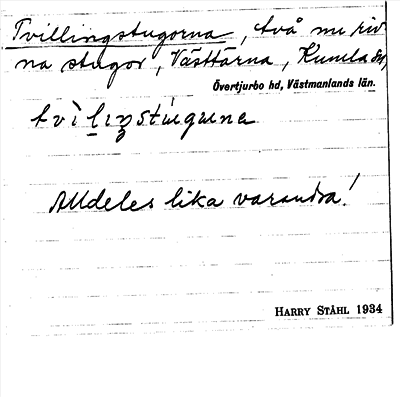 Tvillingstugorna, två nu riv
na stugor, Västtärna, Kumla sn,
Övertjurbo hd, Västmanlands län.
Alldeles lika varandra!
HARRY STÅHL 1934